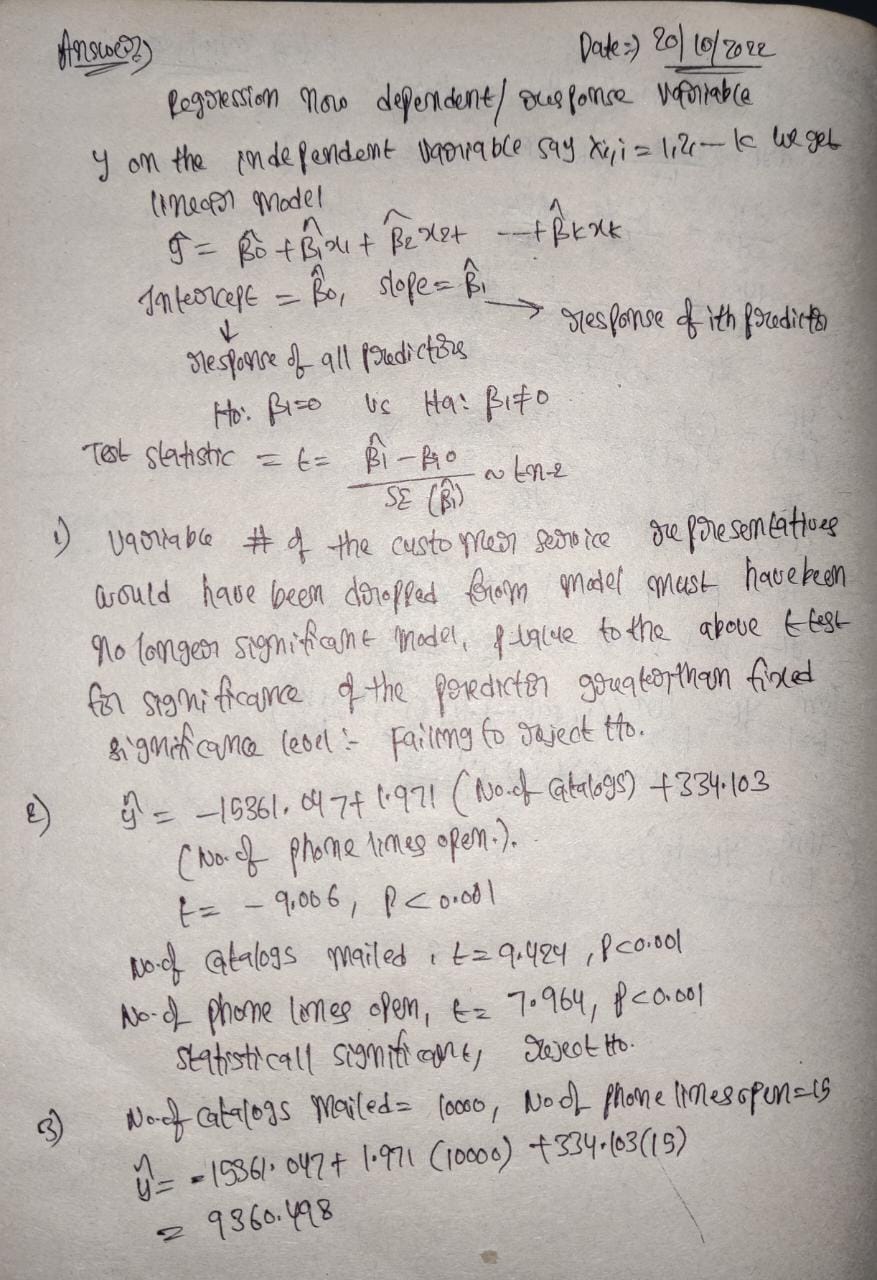 Answer:)
Date:) 20/10/2022
Regression now dependent/ response variable
y on the independent variable say xi, i = 1,2, — k we get
linear model
ŷ = β̂0 + β̂1x1 + β̂2x2+ ---+ β̂kxk
Intercept = β̂0, slope = β̂i
→ response of ith predictor
↓
response of all predictors
H0: βi=0 vs Ha: βi≠0
Test statistic = t = (β̂i – βi0) / SE (β̂i) ~ tn-2
1) variable # of the customer service representatives
would have been dropped from model must have been
no longer significant model, p value to the above t test
for significance of the predictor greater than fixed
significance level :- Failing to reject H0.
2) ŷ = -15361.047 + 1.971 (No. of catalogs) + 334.103
(No. of phone lines open.).
t = - 9.006, P < 0.001
No. of catalogs mailed, t = 9.424, P<0.001
No. of phone lines open, t = 7.964, P<0.001
statisticall significant, reject H0.
3) No. of catalogs mailed = 10000, No of phone lines open = 15
ŷ = -15361.047 + 1.971 (10000) + 334.103(15)
= 9360.498